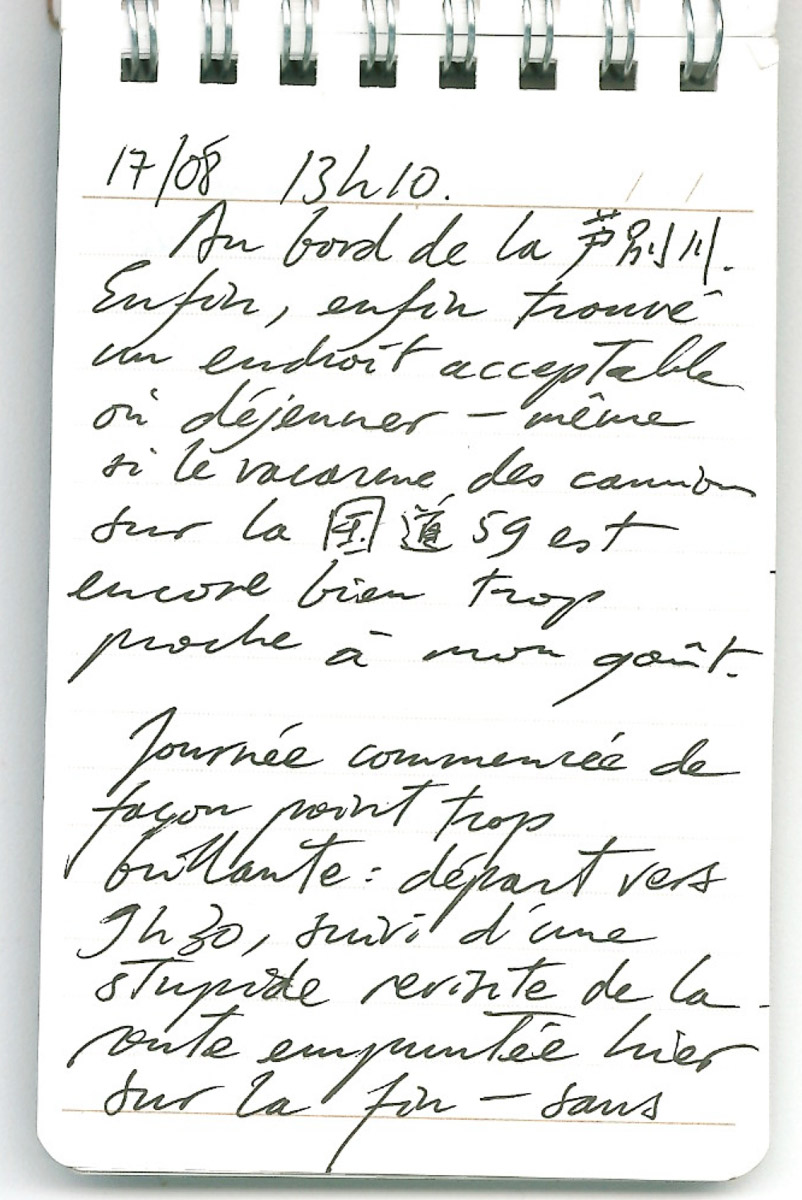 17/08 13h10.
Au bord de la 芦別川.
Enfin, enfin trouvé
un endroit acceptable
où déjeuner – même
si le vacarme des camions
sur la 国道 59 est
encore bien trop
proche à mon goût.
Journée commencée de
façon point trop
brillante : départ vers
9h30, suivi d'une
stupide revisite de la
route empruntée hier
sur la fin – sans